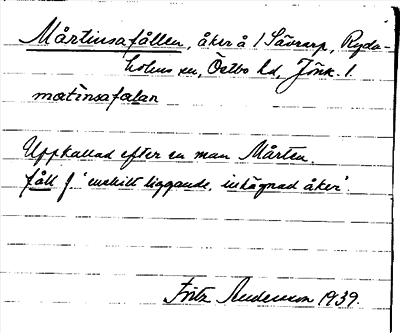 Mårtinsafållen, åker å 1 Sävrarp, Ryda-
holms sn, Östbo hd, Jönk. l.
matinsafalan
Uppkallad efter en man Mårten.
fåll f 'enskilt liggande, inhägnad åker'.
Fritz Andersson 1939.